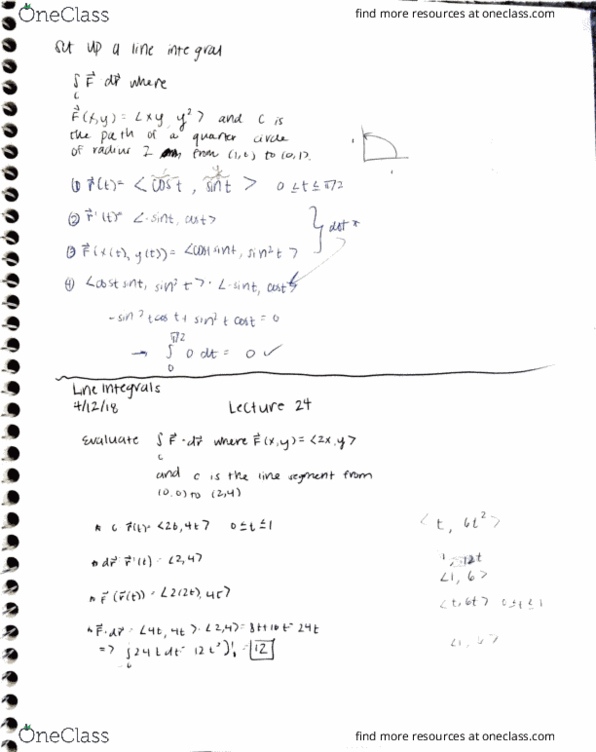 OneClass
find more resources at oneclass.com
Set up a line integral
∫ F⃗ · dr⃗ where
c
F⃗(x,y) = <xy, y²> and C is
the path of a quarter circle
of radius 2 from (1,0) to (0,1).
1
1
① r⃗(t) = <cost, sint> 0 ≤ t ≤ π/2
② r⃗'(t) = <-sint, cost>
dot
③ F⃗(x(t), y(t)) = <cost sint, sin²t>
④ <cost sint, sin²t> · <-sint, cost>
-sin²t cos t + sin²t cost = 0
→ ∫ 0 dt = 0 ✓
π/2
0
Line Integrals
4/12/18 Lecture 24
Evaluate ∫ F⃗ · dr⃗ where F⃗(x,y) = <2x, y>
c
and c is the line segment from
(0,0) to (2,4)
C: r⃗(t) = <2t, 4t> 0 ≤ t ≤ 1
<t, 6t²>
dr⃗ r⃗'(t) = <2,4>
12t
<1, 6>
F⃗(r⃗(t)) = <2(2t), 4t>
<t, 6t> 0 ≤ t ≤ 1
F⃗·dr⃗ = <4t, 4t> · <2,4> = 8t+16t = 24t
=> ∫ 24t dt = 12t²)¹₀ = 12
OneClass
find more resources at oneclass.com